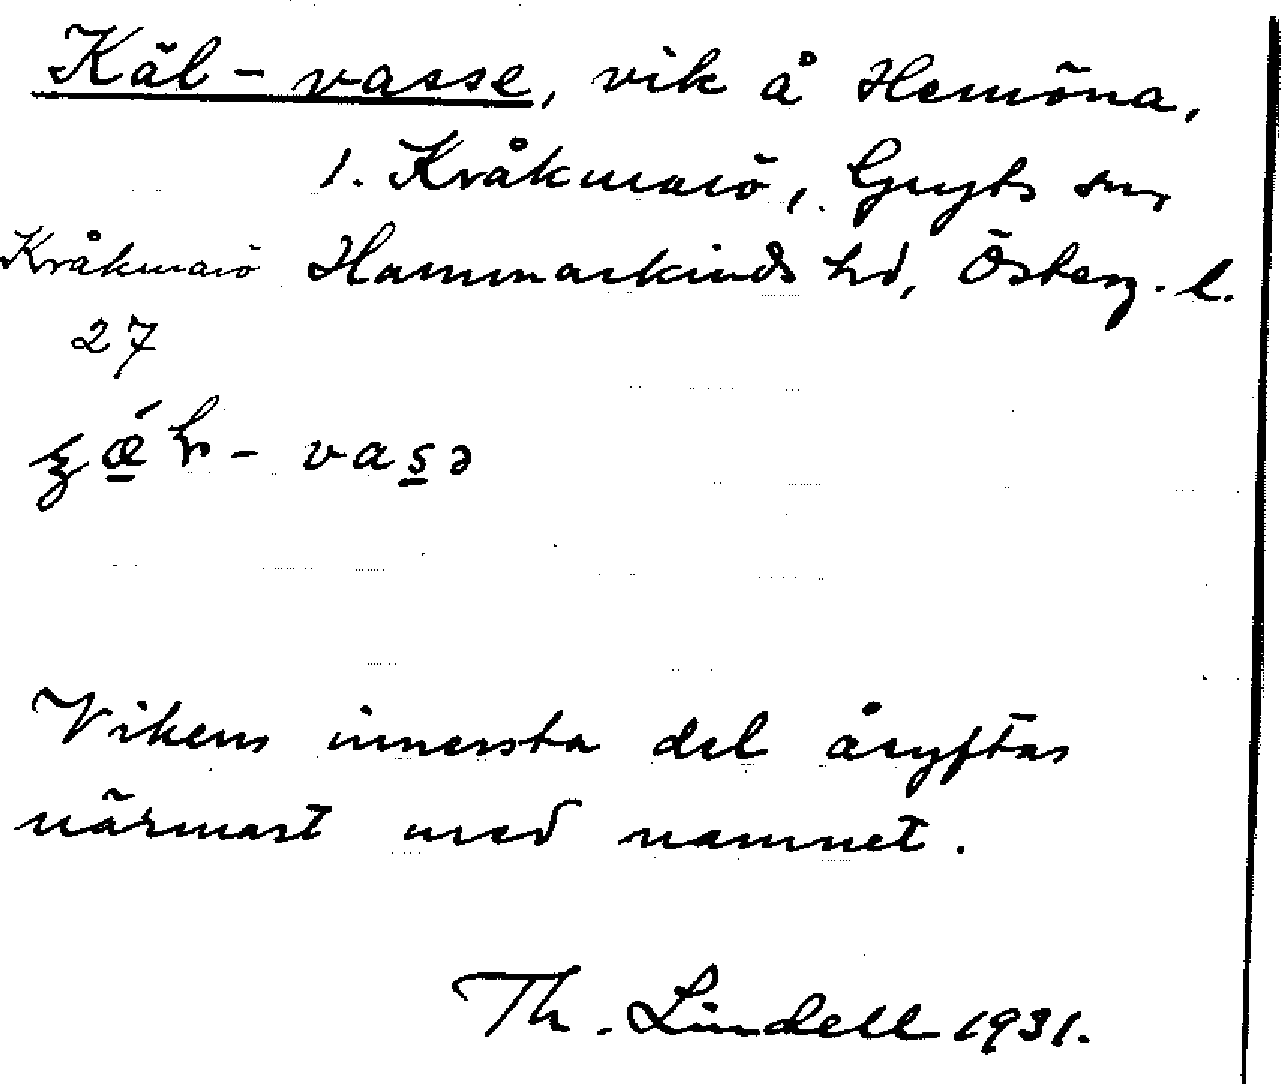 Käl-vasse, vik å Hemöna,
1. Kråkmarö, Gryts sn,
Kråkmarö Hammarkinds hd, Österg. l.
27
-vas̲ə
Vikens innersta del åsyftas
närmast med namnet.
Th. Lindell 1931.